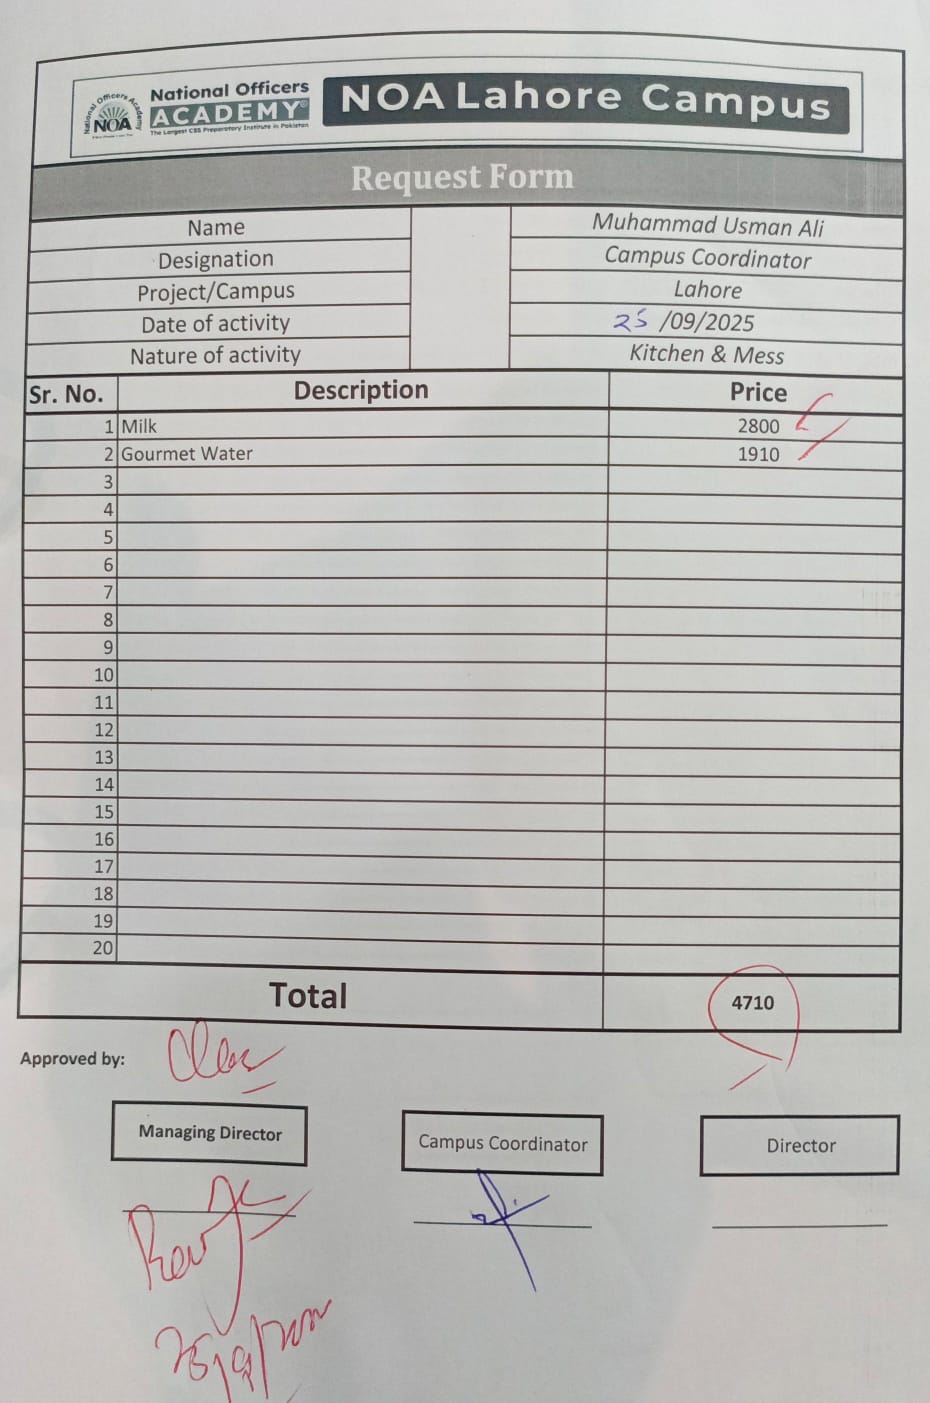 National Officers Academy
NOA
National Officers
ACADEMY
The Largest CSS Preparatory Institute in Pakistan
NOA Lahore Campus
Request Form
Name Muhammad Usman Ali
Designation Campus Coordinator
Project/Campus Lahore
Date of activity 25 /09/2025
Nature of activity Kitchen & Mess
Sr. No. Description Price
1 Milk 2800
2 Gourmet Water 1910
3
4
5
6
7
8
9
10
11
12
13
14
15
16
17
18
19
20
Total 4710
Approved by:
Managing Director Campus Coordinator Director